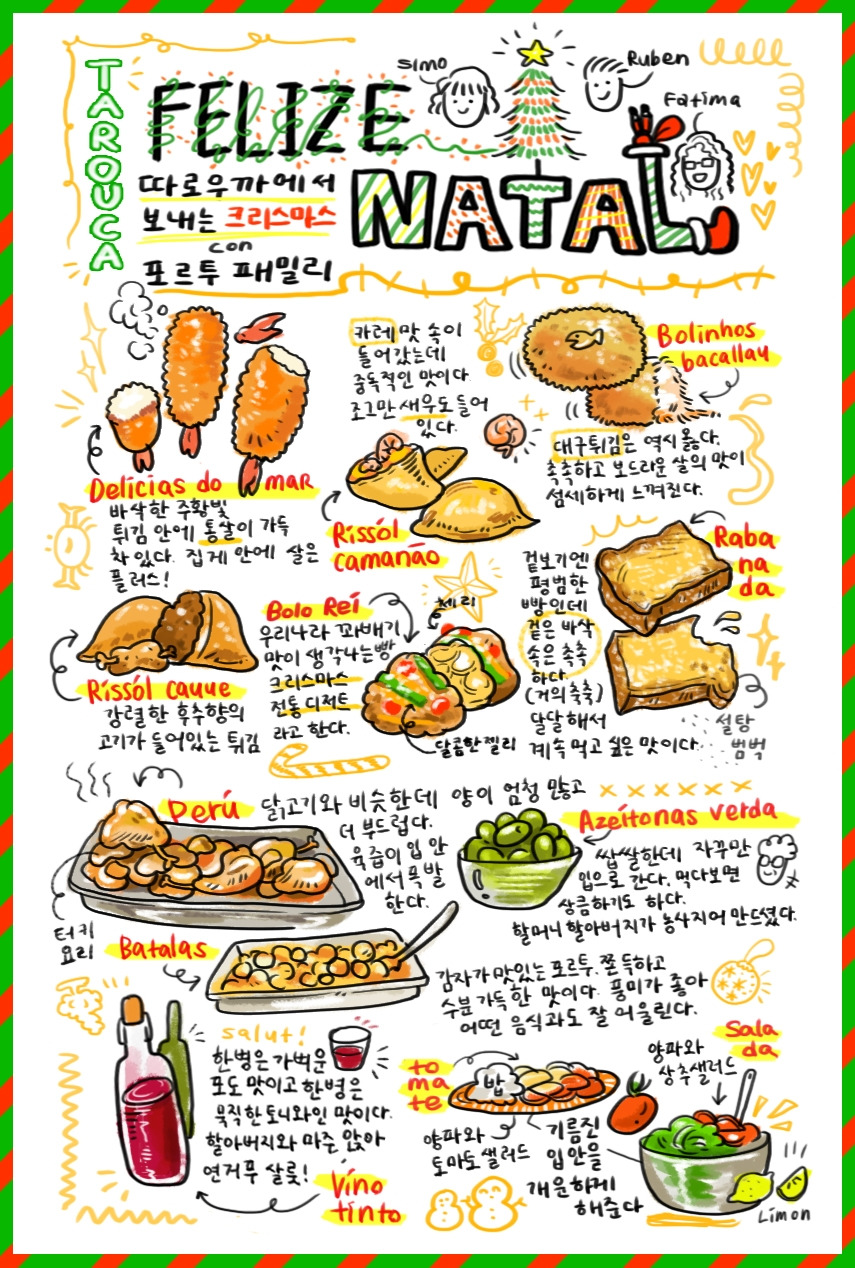 TAROUCA
FELIZE
NATAL
simo
Ruben
Fatima
따로우까에서
보내는 크리스마스
con
포르투 패밀리
Delícias do mar
바삭한 주황빛
튀김 안에 통살이 가득
차 있다. 집게 안에 살은
플러스!
카레 맛 속이
들어갔는데
중독적인 맛이다
조그만 새우도 들어
있다.
Rissól
camanão
Bolinhos
bacallau
대구튀김은 역시 옳다.
촉촉하고 보드라운 살의 맛이
섬세하게 느껴진다.
Raba
na
da
겉보기엔
평범한
빵인데
겉은 바삭
속은 촉촉
하다.
(거의 축축)
달달해서
계속 먹고 싶은 맛이다.
설탕
범벅
Rissól cauue
강렬한 후추향의
고기가 들어있는 튀김
Bolo Reí
우리나라 꽈배기
맛이 생각나는 빵
크리스마스
전통 디저트
라고 한다.
체리
달콤한 젤리
Perú
닭고기와 비슷한데 양이 엄청 많고
더 부드럽다.
육즙이 입 안
에서 폭발
한다.
터키
요리
Azeítonas verda
쌉쌀한데 자꾸만
입으로 간다. 먹다보면
상큼하기도 하다.
할머니 할아버지가 농사지어 만드셨다.
Batalas
감자가 맛있는 포르투. 쫀득하고
수분 가득한 맛이다. 풍미가 좋아
어떤 음식과도 잘 어울린다.
salut!
한병은 가벼운
포도 맛이고 한병은
묵직한 토니와인 맛이다.
할아버지와 마주 앉아
연거푸 살룻!
Víno
tinto
to
ma
te
밥
양파와
토마토 샐러드
기름진
입안을
개운하게
해준다
Sala
da
양파와
상추샐러드
Limon